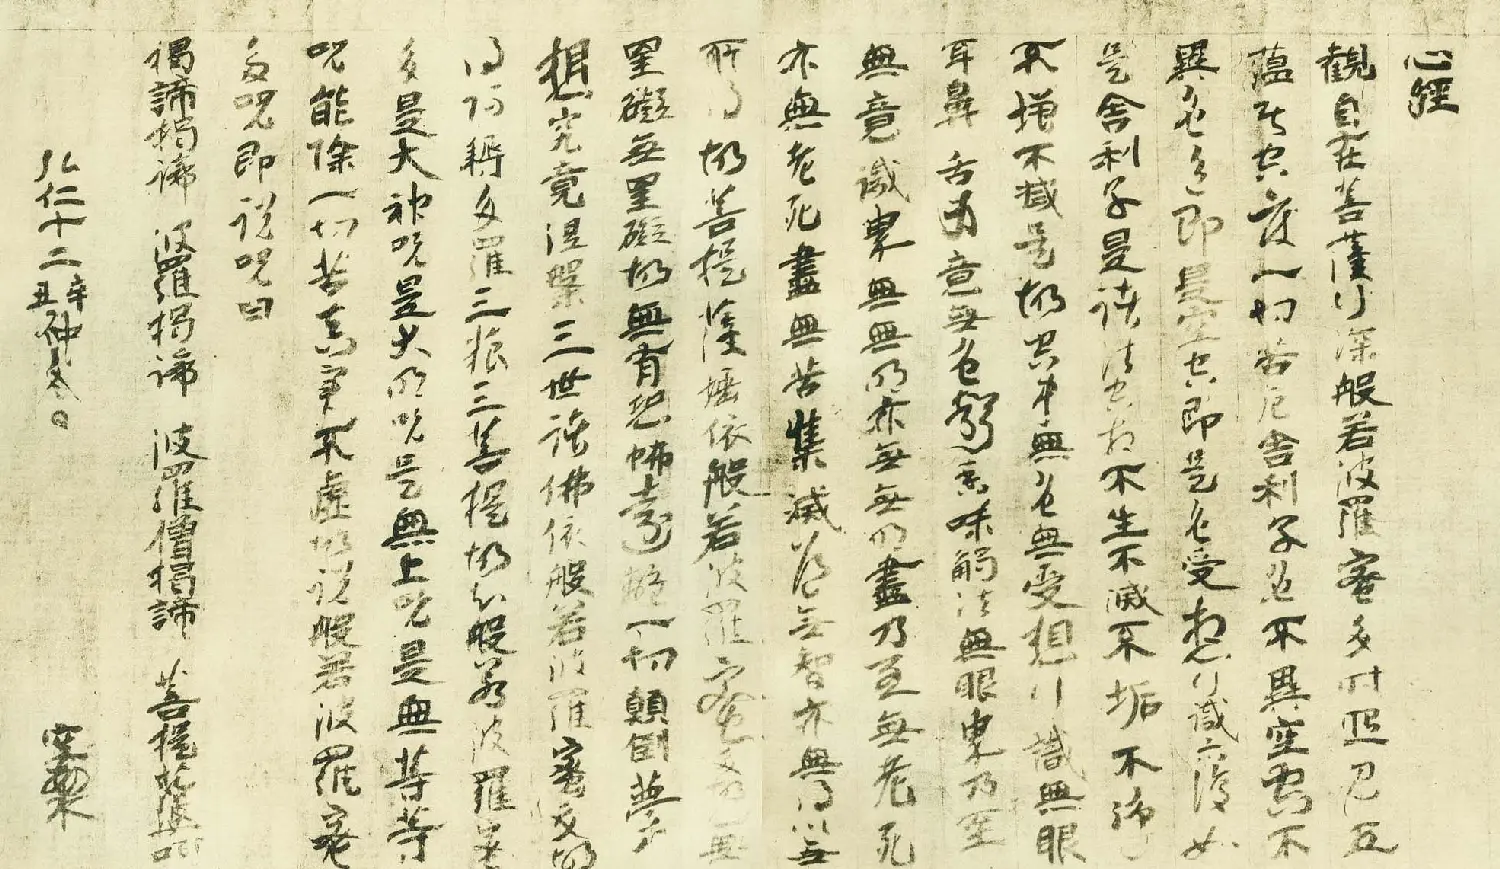 心經
觀自在菩薩行深般若波羅蜜多時照見五
蘊皆空度一切苦厄舍利子色不異空空不
異色色即是空空即是色受想行識亦復如
是舍利子是諸法空相不生不滅不垢不淨
不增不減是故空中無色無受想行識無眼
耳鼻舌身意無色聲香味觸法無眼界乃至
無意識界無無明亦無無明盡乃至無老死
亦無老死盡無苦集滅道無智亦無得以無
所得故菩提薩埵依般若波羅蜜多故無
罣礙無罣礙故無有恐怖遠離一切顛倒夢
想究竟涅槃三世諸佛依般若波羅蜜多故
得阿耨多羅三藐三菩提故知般若波羅蜜
多是大神呪是大明呪是無上呪是無等等
呪能除一切苦真實不虛故說般若波羅蜜
多呪即說呪曰
揭諦揭諦 波羅揭諦 波羅僧揭諦 菩提薩婆訶
弘仁十二辛丑仲冬日